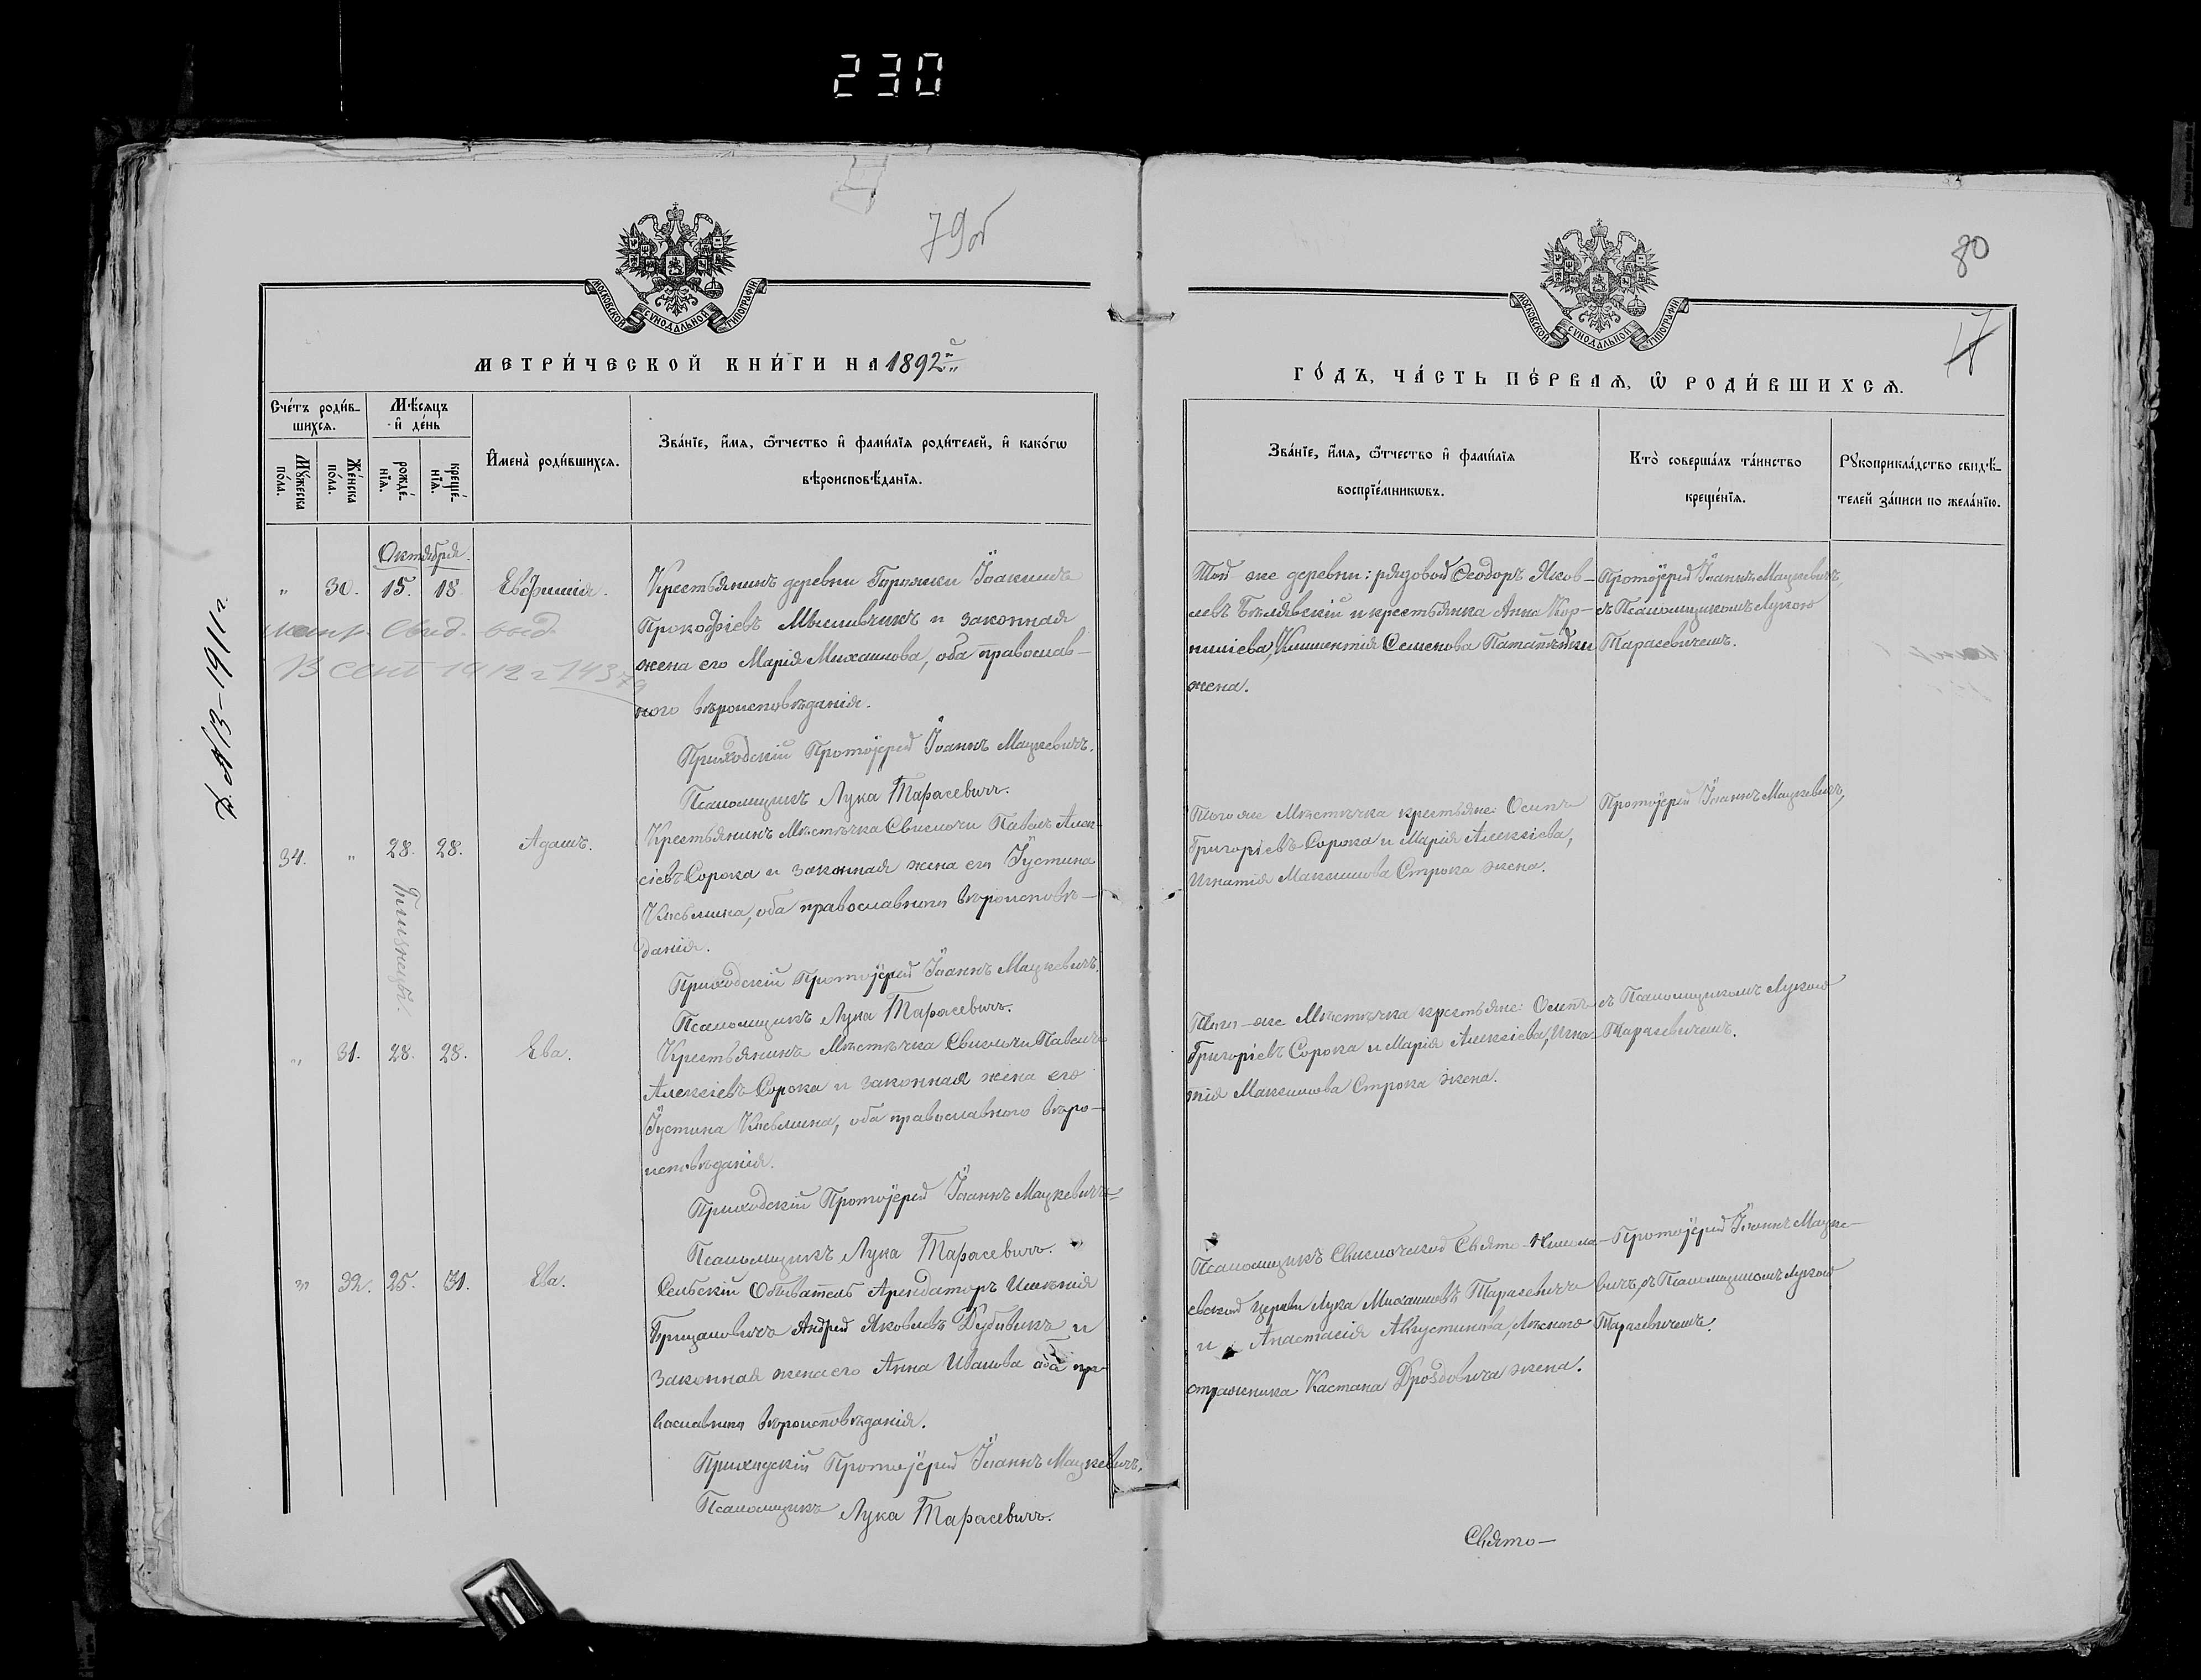 230
79об
80
17
МОСКОВСКОЙ СѴНОДАЛЬНОЙ ТИПОГРАФІИ
МОСКОВСКОЙ СѴНОДАЛЬНОЙ ТИПОГРАФІИ
МЕТРИ́ЧЕСКОЙ КНИ́ГИ НА 1892й
ГО́ДЪ, ЧА́СТЬ ПЕ́РВАѦ, Ѡ РОДИ́ВШИХСѦ.
Сче́тъ роди́в-
шихсѧ.
Мꙋ́жеска по́ла.
Же́нска по́ла.
Мѣ́сѧцъ и҆ де́нь
рожде́-нїѧ.
креще́-нїѧ.
И҆мена̀ роди́вшихсѧ.
Зва́нїе, и҆́мѧ, ѻ҆́тчество и҆ фами́лїѧ роди́телей, и҆ како́гѡ
вѣроисповѣ́данїѧ.
Зва́нїе, и҆́мѧ, ѻ҆́тчество и҆ фами́лїѧ
воспрїе́мникѡвъ.
Кто̀ соверша́лъ та́инство
креще́нїѧ.
Рꙋкоприкла́дство свидѣ́-
телей за́писи по жела́нїю.
Октября.
" 30. 15. 18. Евфимія.
Свид. выд.
13 сент 1912 г 143
1911 г.
Крестьянинъ деревни Іоакимъ
Прокофіевъ Мысливчикъ и законная
жена его Марія Михаилова, оба православ-
ного вѣроисповѣданія.
Приходскій Протоіерей Іоаннъ Мацкевичъ.
Псаломщикъ Лука Тарасевичъ.
Той же деревни: рядовой Ѳеодоръ Яков-
левъ Бѣлявскій и крестьянка Анна Кор-
нилiева, Климентія Семенова
жена.
Протоіерей Іоаннъ Мацкевичъ,
съ Псаломщикомъ Лукою
Тарасевичемъ.
34. " 28. 28. Адамъ.
Близнецы.
Крестьянинъ Мѣстечка Свислочи Павелъ Алек-
сіевъ Сорока и законная жена его Іустина
Кузьмина, оба православного вѣроисповѣ-
данія.
Приходскій Протоіерей Іоаннъ Мацкевичъ.
Псаломщикъ Лука Тарасевичъ.
Того же Мѣстечка крестьяне: Осипъ
Григоріевъ Сорока и Марія Алексіева,
Игнатія Максимова Строка жена.
Протоіерей Іоаннъ Мацкевичъ,
" 31. 28. 28. Ева.
Крестьянинъ Мѣстечка Свислочи Павелъ
Алексіевъ Сорока и законная жена его
Іустина Кузьмина, оба православного вѣро-
исповѣданія.
Приходскій Протоіерей Іоаннъ Мацкевичъ.
Псаломщикъ Лука Тарасевичъ.
Того-же Мѣстечка крестьяне: Осипъ
Григоріевъ Сорока и Марія Алексіева, Игна-
тія Максимова Строка жена.
съ Псаломщикомъ Лукою
Тарасевичемъ.
" 32. 25. 31. Ева.
Сельскій Обыватель Арендаторъ Имѣнія
Андрей Яковлевъ Дубовикъ и
законная жена его Анна Иванова оба пра-
вославного вѣроисповѣданія.
Приходскій Протоіерей Іоаннъ Мацкевичъ.
Псаломщикъ Лука Тарасевичъ.
Псаломщикъ Свислочской Свято-Никола-
евской церкви Лука Михаиловъ Тарасевичъ
и Анастасія Августинова, Лѣсного
стражника Кастана Дроздовича жена.
Протоіерей Іоаннъ Мацке-
вичъ, съ Псаломщикомъ Лукою
Тарасевичемъ.
Свято-